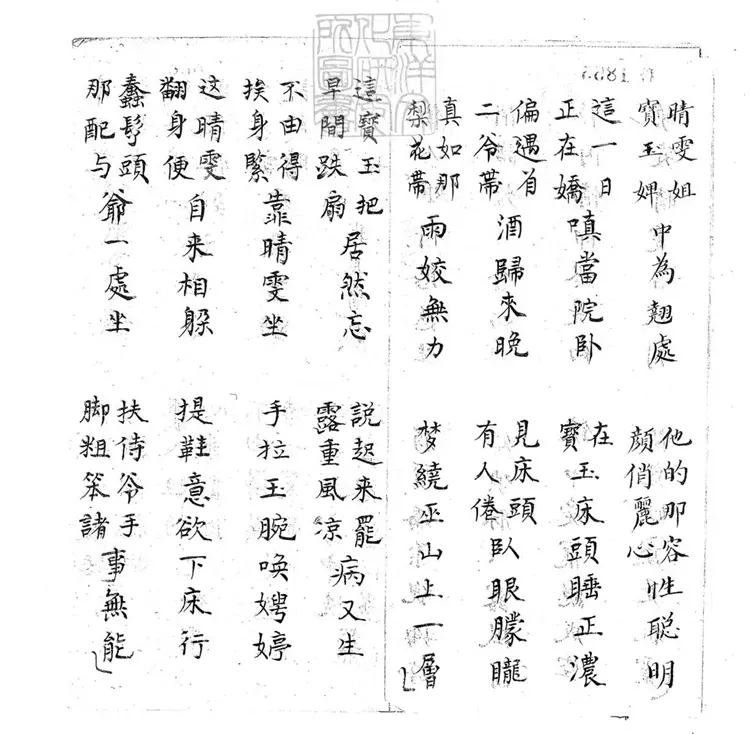 晴雯姐寶玉婢中為翹處
他的那容顏俏麗心性聰明
這一日正在嬌嗔當院卧
在寶玉床頭睡正濃
偏遇着二爷帶酒歸來晚
見床頭有人倦臥眼朦朧
真如那梨花帶雨姣無力
梦繞巫山上一層
這寶玉把早間跌扇居然忘
說起来罷露重風凉病又生
不由得挨身緊靠晴雯坐
手拉玉腕唤娉婷
这晴雯翻身便自来相躲
提鞋意欲下床行
蠢髩頭那配与爺一處坐
扶侍爷手脚粗笨諸事無能